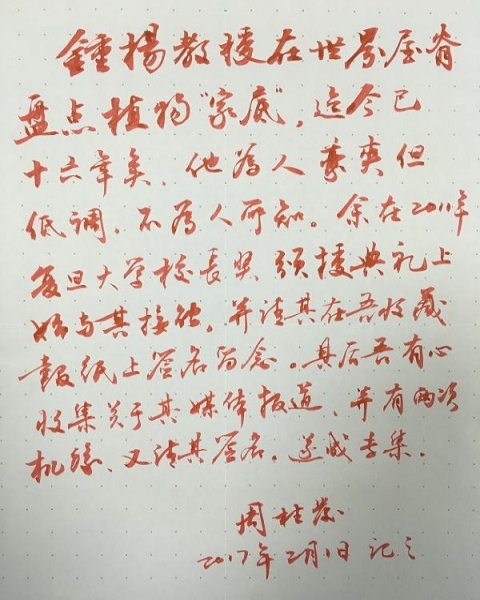 鍾揚教授在世界屋脊
盘点植物“家底”，迄今已
十六年矣。他為人豪爽但
低调，不為人所知。余在2011年
复旦大学校長奖颁授典礼上
始与其接触，并请其在吾收藏
報纸上签名留念。其后吾有心
收集关于其媒体报道，并有两次
机缘，又请其签名，遂成专集。
周桂發
2017年2月1日记之